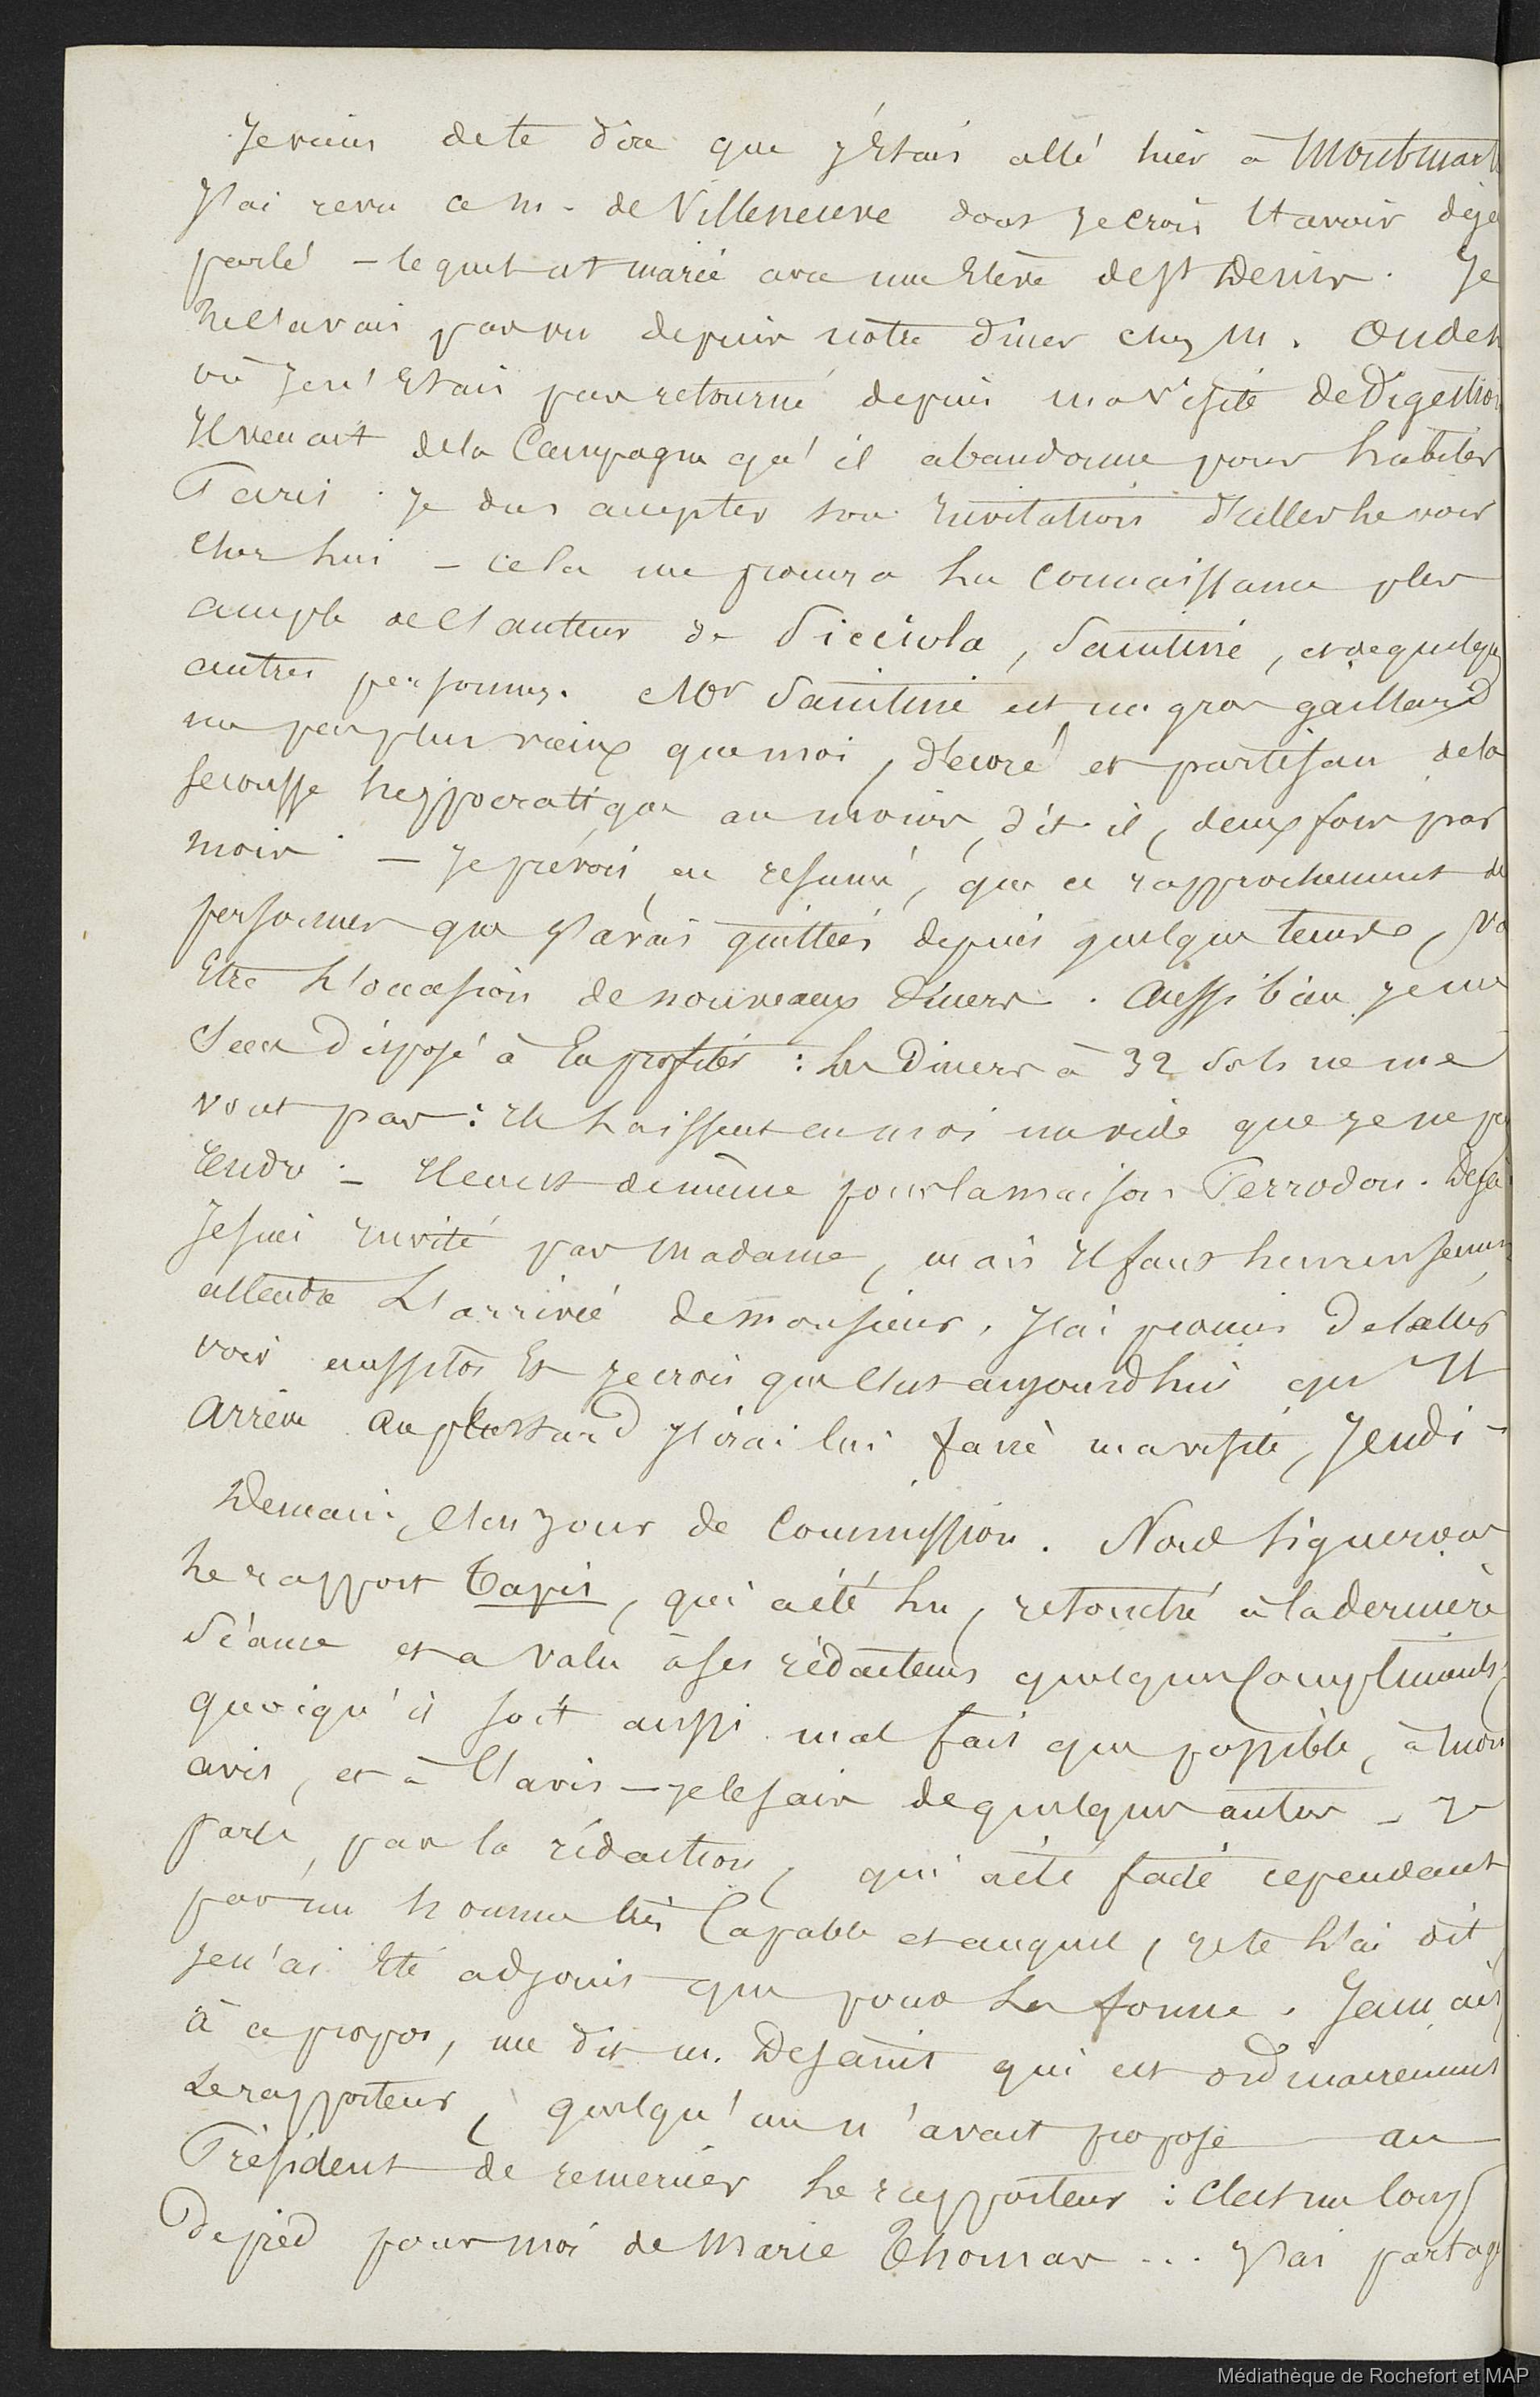 Je viens de te dire que j'étais allé hier à Montmart
J'ai revu ce M. de Villeneuve dont je crois t'avoir déja
parlé – lequel est marié avec une Elève de St Denis. Je
ne l'avais pas vu depuis notre diner chez M. Oudet
où je n'étais pas retourné depuis ma visite de Digestion
Il venait de la Campagne qu'il abandonne pour habiter
Paris. Je dus accepter son invitation d'aller le voir
chez lui – cela me procura la connaissance plus
ample de l'auteur de Picciola, Saintine, et de quelques
autres personnes. Mr Saintine est un gros gaillard
un peu plus vieux que moi, décoré et partisan de la
secousse hyppocratique au moins, dit il, deux fois par
mois – Je prévois, en résumé, que ce rapprochement de
personnes que j'avais quittées depuis quelque temps, va
être l'occasion de nouveaux diners. Aussi bien je me
sens disposé à en profiter : les Diners à 32 sols ne me
vont pas : ils laissent en moi un vide que je ne p
– Il en est de même pour la maison Perrodon. Deja
Je suis invité par Madame, mais il faut heureusement
attendre l'arrivée de monsieur. J'ai promis de l'aller
voir aussitôt et je crois que c'est aujourd'hui qu'il
arrive. Au plus tard j'irai lui faire ma visite, Jeudi –
Demain, c'est jour de Commission. Nous signerons
le rapport Tapis, qui a été lu, retouché à la dernière
Séance et a valu à ses rédacteurs quelques compliments,
quoiqu'il soit aussi mal fait que possible, à mon
avis, et à l'avis – je le sais de quelques autres – Je
parle, par la rédaction, qui a été faite cependant
par un homme très Capable et auquel, je te l'ai dit,
je n'ai été adjoint que pour la forme. Jamais,
à ce propos, me dit M. Desains qui est ordinairement
Le rapporteur, quelqu'un n'avait proposé au
Président de remercier le rapporteur : c'est un coup
de pied pour moi de Marie Thomas ... J'ai partag